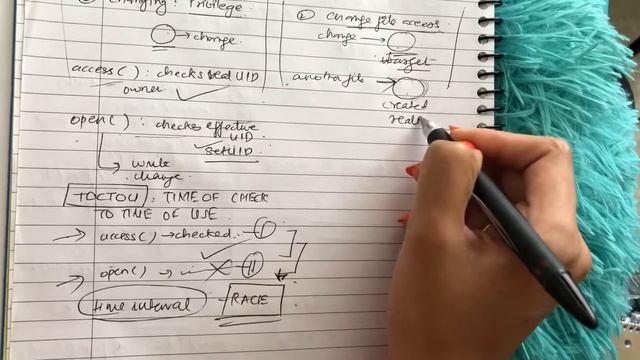 changing: Privilege
→ change
access( ) : checks real UID
owner
open( ) : checks effective
UID
setUID
→ write
change
TOCTOU : TIME OF CHECK
TO TIME OF USE
→ access( ) → checked I
→ open( ) → II
time interval
RACE
② change file access
change →
target
another file →
created
real